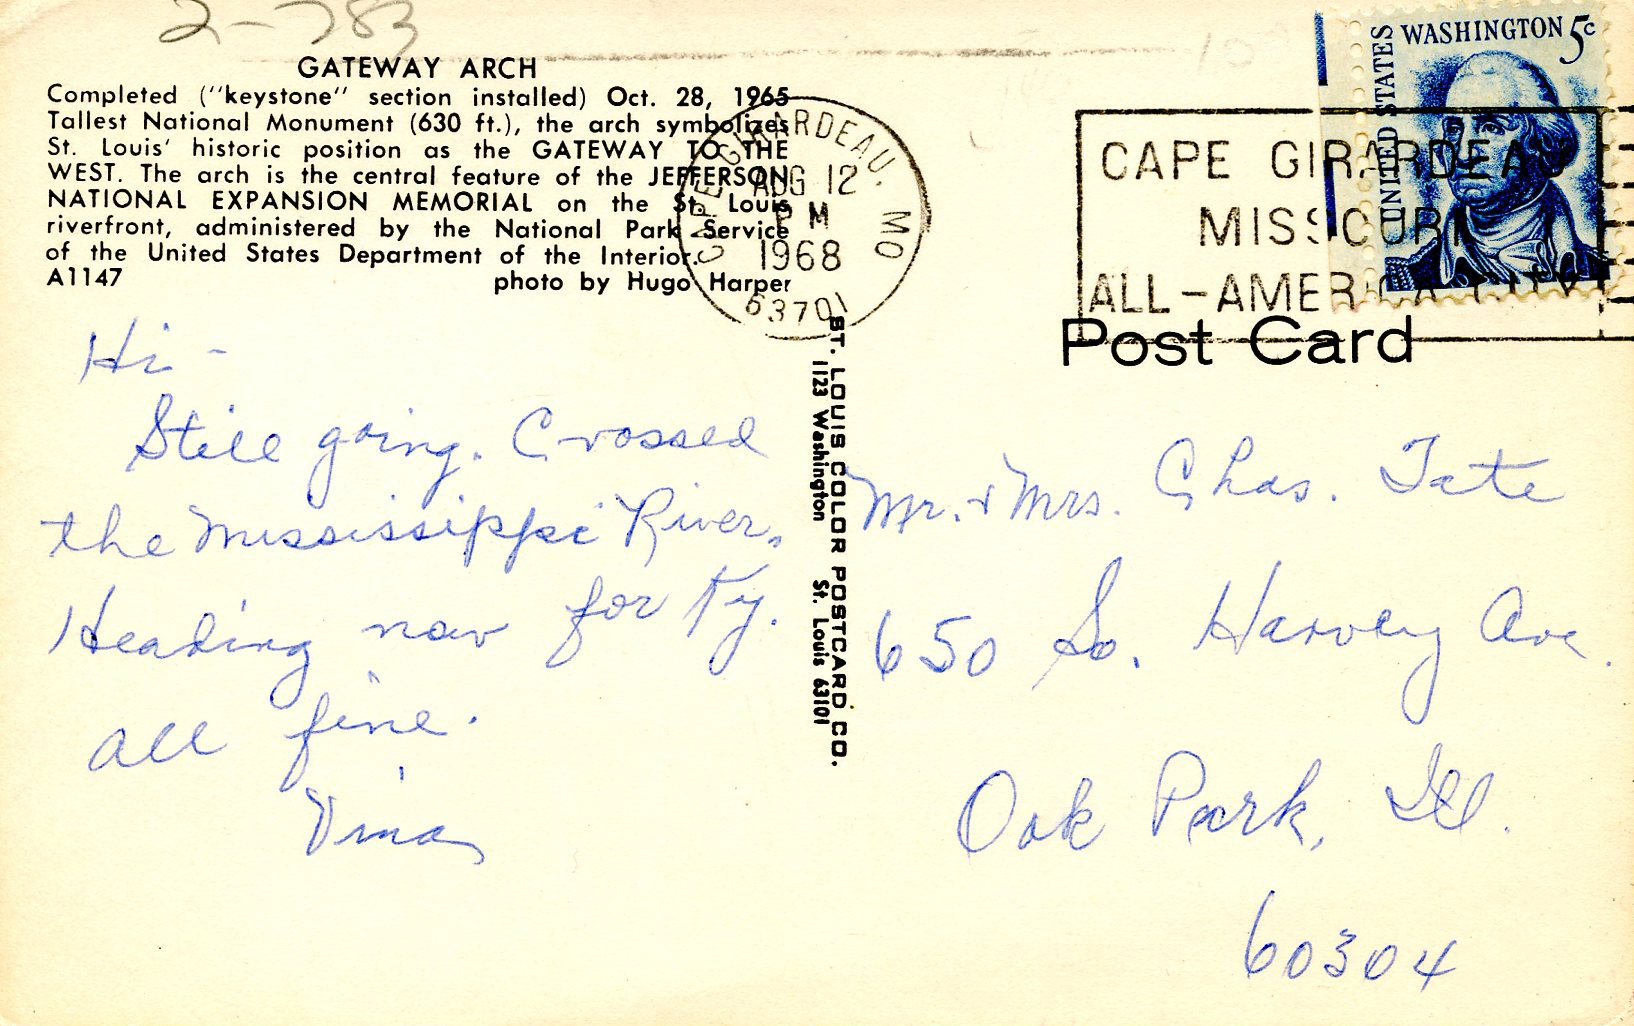 2-783
GATEWAY ARCH
Completed ("keystone" section installed) Oct. 28, 1965
Tallest National Monument (630 ft.), the arch symbolizes
St. Louis' historic position as the GATEWAY TO THE
WEST. The arch is the central feature of the JEFFERSON
NATIONAL EXPANSION MEMORIAL on the St. Louis
riverfront, administered by the National Park Service
of the United States Department of the Interior.
A1147 photo by Hugo Harper
CAPE GIRARDEAU, MO
AUG 12
PM
1968
63701
CAPE GIRARDEAU
MISSOURI
ALL-AMERICA CITY
UNITED STATES
WASHINGTON 5c
Post Card
Hi -
Still going. Crossed
the Mississippi River.
Heading now for Ky.
All fine.
Vina
ST. LOUIS COLOR POSTCARD CO.
1123 Washington St. Louis 63101
Mr. & Mrs. Chas. Tate
650 So. Harvey Ave.
Oak Park, Ill.
60304